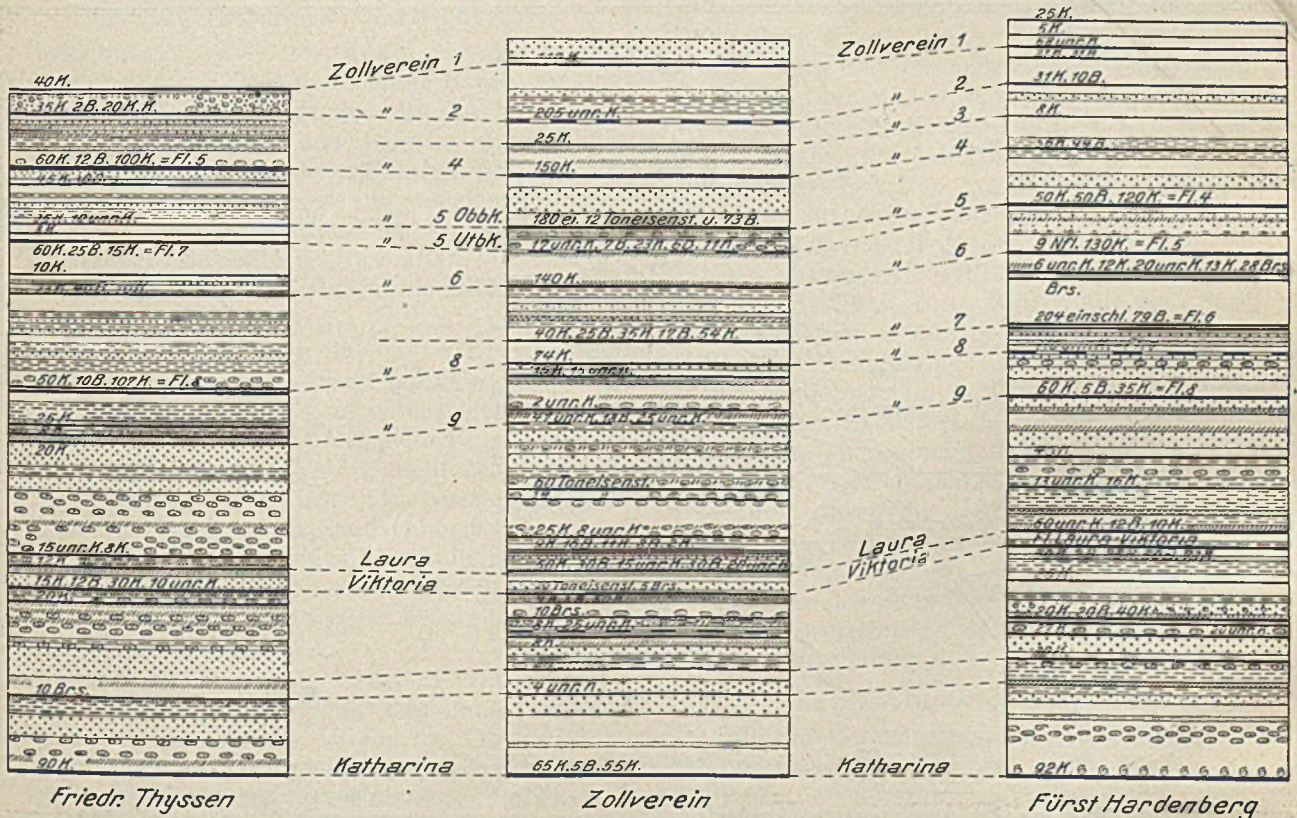 40K.
35K. 2B. 20K.K.
60K. 12 B. 100K. = Fl. 5
60K. 25B. 15K. = Fl. 7
10K.
50K. 10B. 107K. = Fl. 8
25K.
20K.
15 unr. K. 8K.
12K.
15K. 12B. 30K. 10 unr. K.
20K.
10 Brs.
90K.
Friedr. Thyssen
Zollverein 1
" 2
" 4
" 5 Obbk.
" 5 Utbk.
" 6
" 8
" 9
Laura
Viktoria
Katharina
205 unr. K.
25K.
150K.
180 ei. 12 Toneisenst. u. 73 B.
17 unr. K. 7B. 23K. 6B. 11K.
140K.
40K. 25B. 35K. 17B. 54K.
74K.
2 unr. K.
47 unr. K. 18B. 25 unr. K.
60 Toneisenst.
25K. 8 unr. K.
Toneisenst. 5 Brs.
10 Brs.
8K. 25 unr. K.
4 unr. K.
65K. 5B. 55K.
Zollverein
Zollverein 1
" 2
" 3
" 4
" 5
" 6
" 7
" 8
" 9
Laura
Viktoria
Katharina
25K.
5K.
68 unr. K.
31K. 10B.
8K.
50K. 50B. 120K. = Fl. 4
9 Nfl. 130K. = Fl. 5
6 unr. K. 12K. 20 unr. K. 13K. 28 Brs
Brs.
204 einschl. 79 B. = Fl. 6
60K. 5B. 35K. = Fl. 8
13 unr. K. 16K.
60 unr. K. 12B. 10K.
Fl. Laura-Viktoria
20K. 20B. 40K.
27K.
20 unr. K.
92K.
Fürst Hardenberg